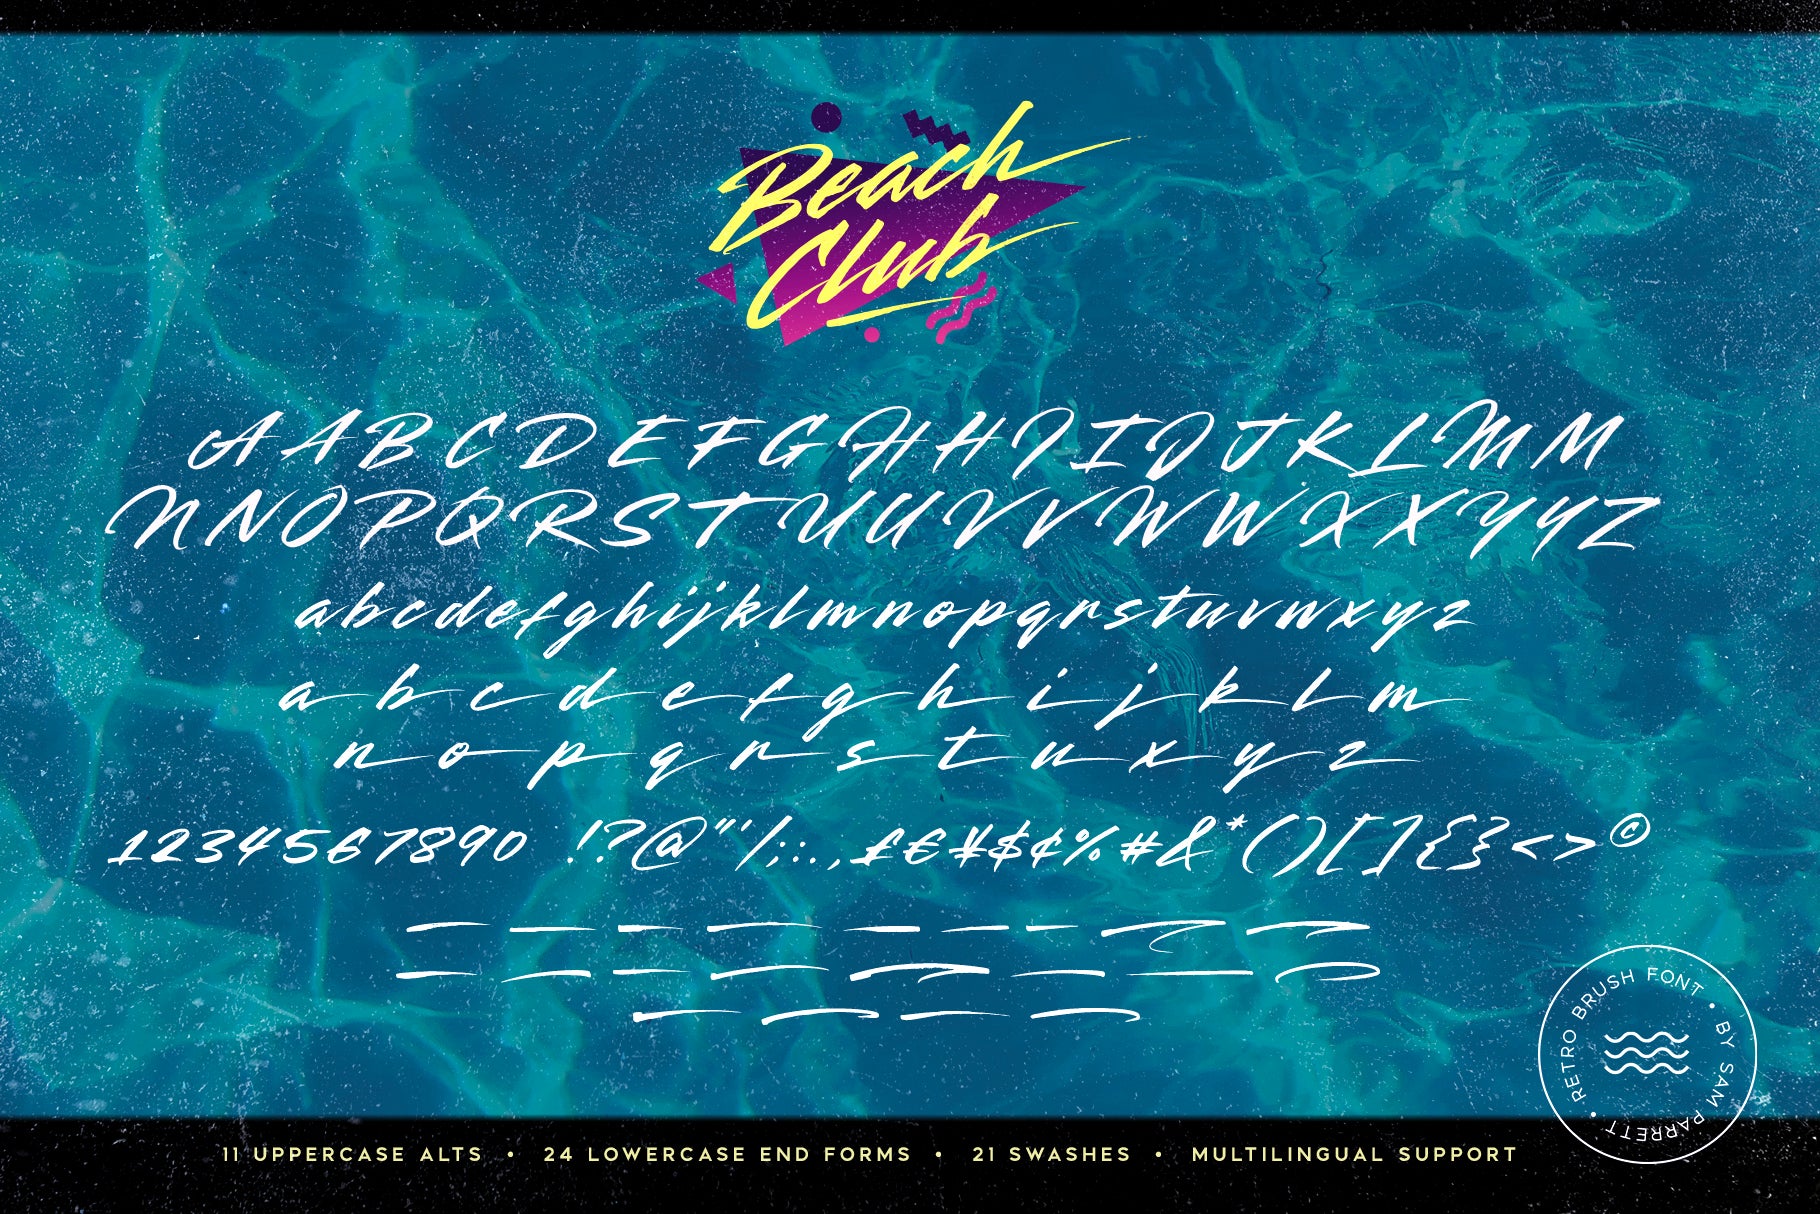 Beach
Club
AABCDEFGHHIIJJKLMM
NNOPQRSTUUVVWWXXYYZ
abcdefghijklmnopqrstuvwxyz
abcdefghijklm
nopqrstuxyz
1234567890 .!?@"'/;:.,£€¥$¢%#&*()[]{}<>©
RETRO BRUSH FONT • BY SAM PARRETT •
11 UPPERCASE ALTS • 24 LOWERCASE END FORMS • 21 SWASHES • MULTILINGUAL SUPPORT